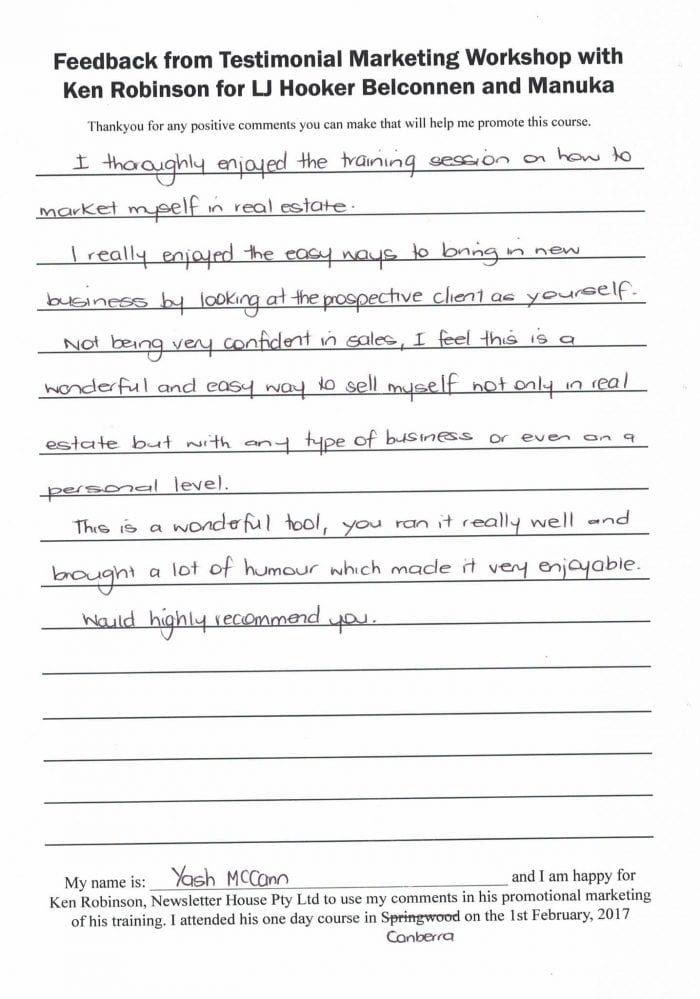 Feedback from Testimonial Marketing Workshop with
Ken Robinson for LJ Hooker Belconnen and Manuka
Thankyou for any positive comments you can make that will help me promote this course.
I thoroughly enjoyed the training session on how to
market myself in real estate.
I really enjoyed the easy ways to bring in new
business by looking at the prospective client as yourself.
Not being very confident in sales, I feel this is a
wonderful and easy way to sell myself not only in real
estate but with any type of business or even on a
personal level.
This is a wonderful tool, you ran it really well and
brought a lot of humour which made it very enjoyable.
Would highly recommend you.
My name is: Yash McCann and I am happy for
Ken Robinson, Newsletter House Pty Ltd to use my comments in his promotional marketing
of his training. I attended his one day course in Springwood on the 1st February, 2017
Canberra